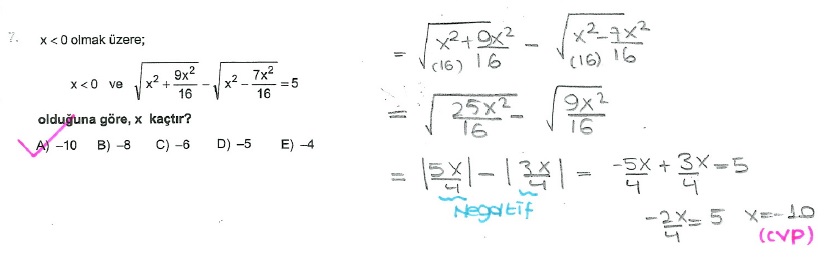 7. x < 0 olmak üzere;
x < 0 ve √(x² + 9x²/16) − √(x² − 7x²/16) = 5
olduğuna göre, x kaçtır?
A) −10 B) −8 C) −6 D) −5 E) −4
= √(x² + 9x²/16) − √(x² − 7x²/16)
(16) (16)
= √(25x²/16) − √(9x²/16)
= |5x/4| − |3x/4| = −5x/4 + 3x/4 = 5
Negatif
−2x/4 = 5 x = −10
(CVP)